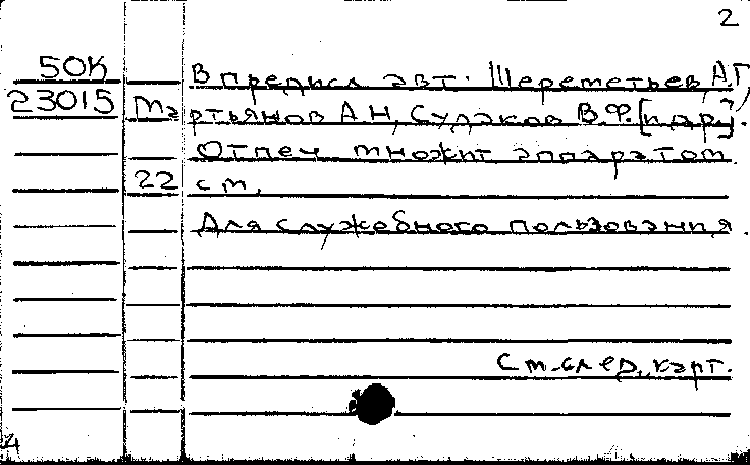 2
50К В предисл авт. Шереметьев А.Г,
23015 Мартьянов А Н, Судаков В.Ф. [и др].
Отпеч множит аппаратом.
22 см.
Для служебного пользования.
См. след. карт.
4